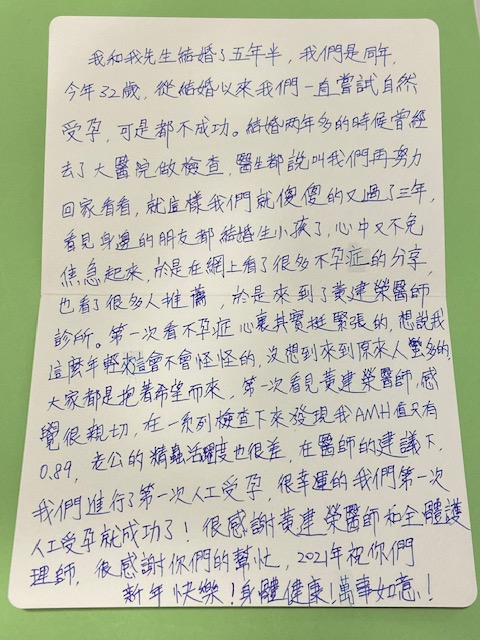 我和我先生結婚了五年半，我們是同年，
今年32歲，從結婚以來我們一直嘗試自然
受孕，可是都不成功。結婚两年多的時候曾經
去了大醫院做檢查，醫生都說叫我們再努力
回家看看，就這樣我們就傻傻的又過了三年，
看見身邊的朋友都結婚生小孩了，心中又不免
焦急起來，於是在網上看了很多不孕症的分享，
也看了很多人推薦，於是來到了黃建榮醫師
診所。第一次看不孕症心裏其實挺緊張的，想說我
這麼年輕來這會不會怪怪的，沒想到來到原來人蠻多的，
大家都是抱着希望而來，第一次看見黃建榮醫師，感
覺很親切，在一系列檢查下來發現我AMH值只有
0.89，老公的精蟲活躍度也很差，在醫師的建議下，
我們進行了第一次人工受孕，很幸運的我們第一次
人工受孕就成功了！很感謝黃建榮醫師和全體護
理師，很感謝你們的幫忙，2021年祝你們
新年快樂！身體健康！萬事如意！